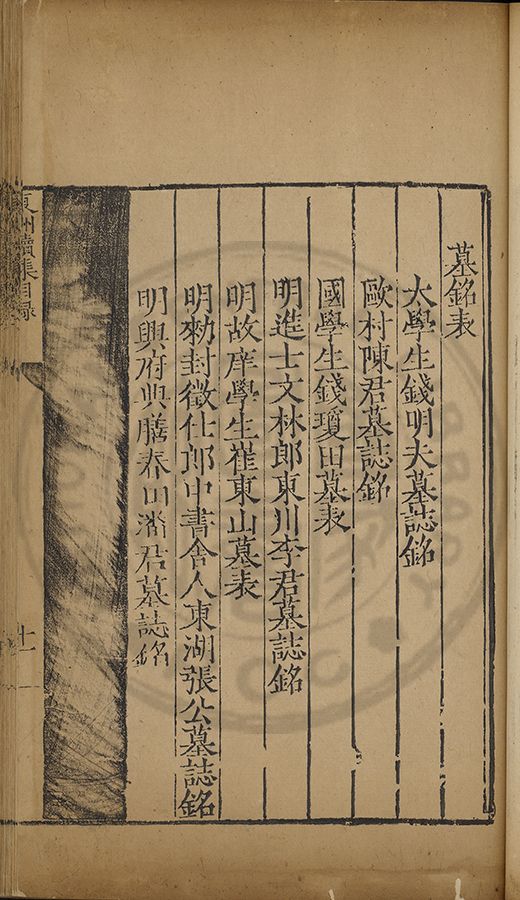 墓銘表
大學生錢明夫墓誌銘
歐村陳君墓誌銘
國學生錢瓊田墓表
明進士文林郎東川李君墓誌銘
明故庠學生崔東山墓表
明勑封徵仕郎中書舍人東湖張公墓誌銘
明興府典膳春山潘君墓誌銘
夏州續集目録
十一